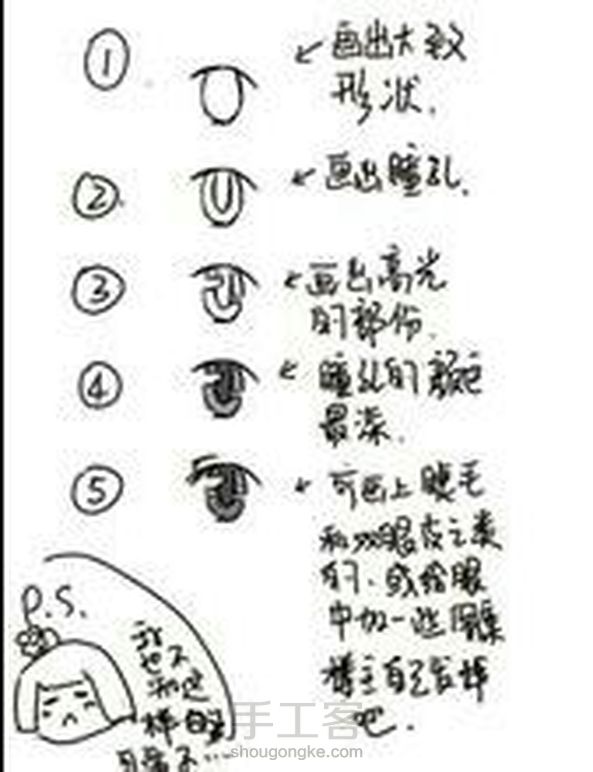 ①
画出大致
形状.
②
画出瞳孔.
③
画出高光
的部份.
④
瞳孔的颜色
最深.
⑤
可画上睫毛
和双眼皮之类
的、或给眼
中加一些图案
楼主自己发挥
吧.
P.S.
我也不
知这
样
手工客
shougongke.com